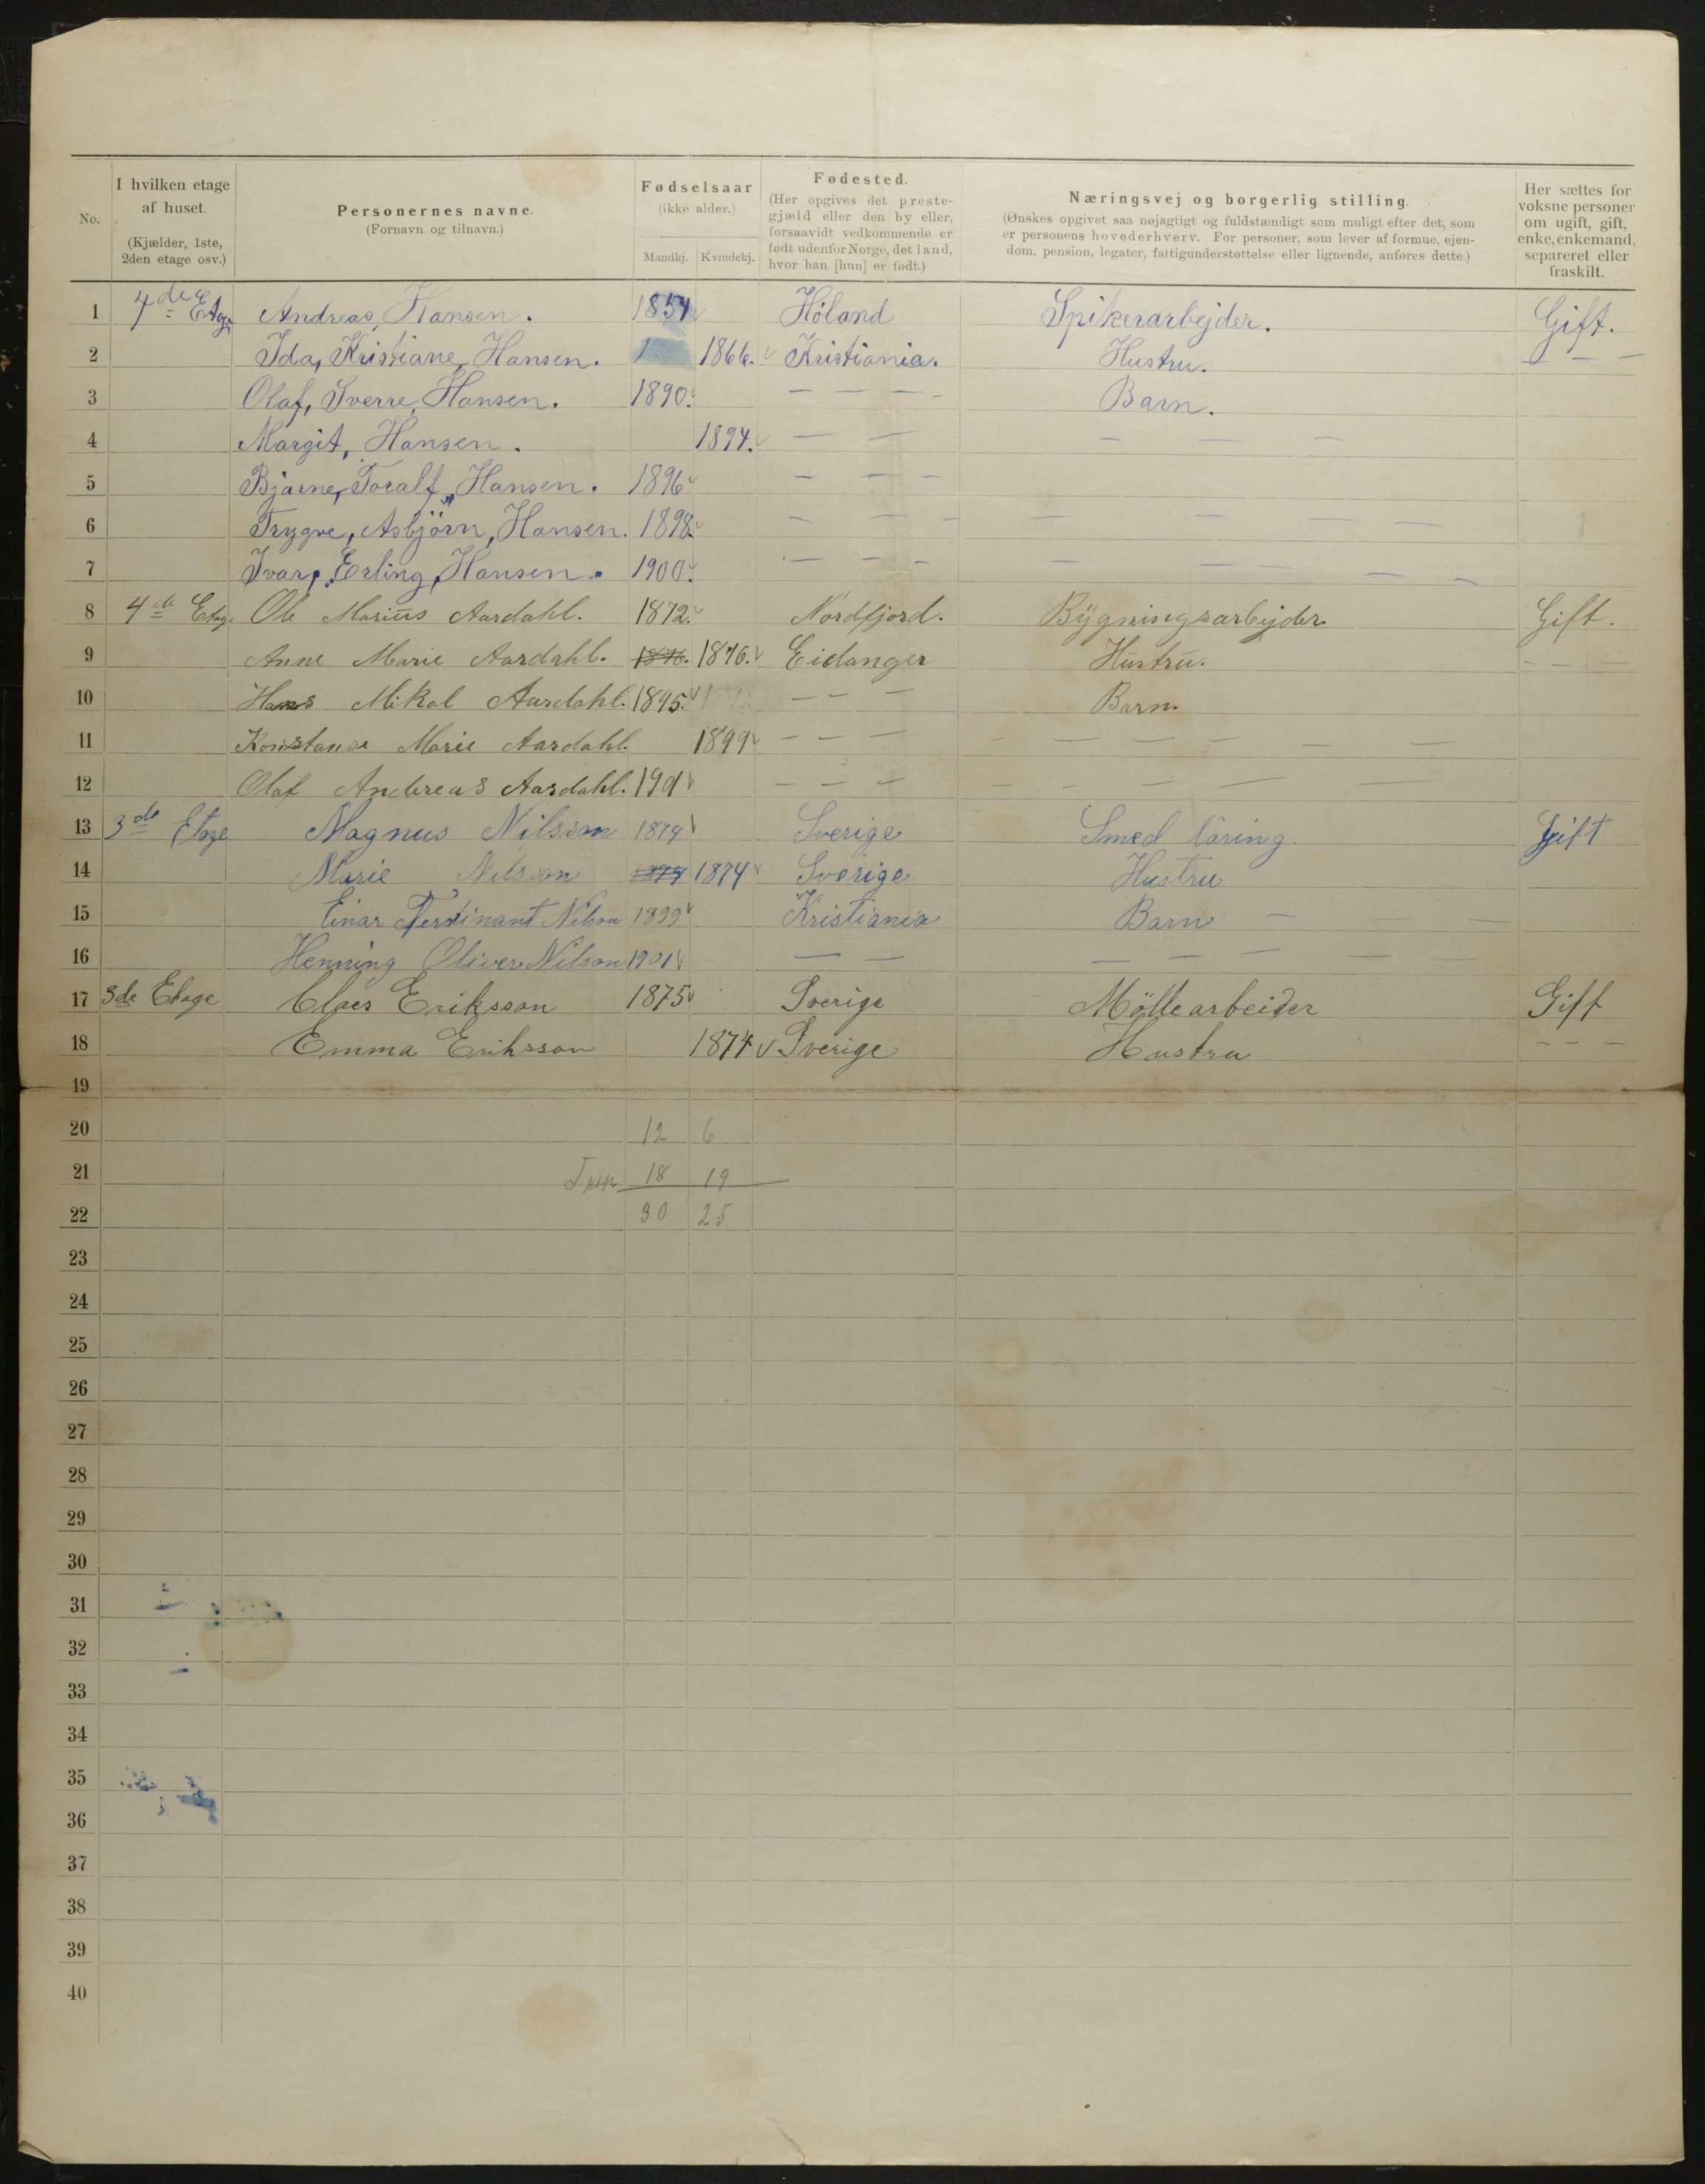 No.
I hvilken etage af huset.
(Kjælder, 1ste, 2den etage osv.)
Personernes navne.
(Fornavn og tilnavn.)
Fødselsaar
(ikke alder.)
Mandkj. Kvindekj.
Fødested.
(Her opgives det prestegjæld eller den by eller, forsaavidt vedkommende er født udenfor Norge, det land, hvor han [hun] er født.)
Næringsvej og borgerlig stilling.
(Ønskes opgivet saa nøjagtigt og fuldstændigt som muligt efter det, som er personens hovederhverv. For personer, som lever af formue, ejendom, pension, legater, fattigunderstøttelse eller lignende, anføres dette.)
Her sættes for voksne personer om ugift, gift, enke, enkemand, separeret eller fraskilt.
1 4de Etage Andreas, Hansen. 1854 Höland Spikerarbejder. Gift.
2 Ida, Kristiane, Hansen. 1 1866. Kristiania. Hustru. — — —
3 Olaf, Sverre, Hansen. 1890. — — — Barn.
4 Margit, Hansen. 1894. — — — — —
5 Bjarne, Toralf, Hansen. 1896 — — —
6 Trygve, Asbjörn, Hansen. 1898. — — — — — — —
7 Ivar, Erling, Hansen. 1900. — — — — — — — —
8 4de Etage Ole Marius Aardahl. 1872. Nordfjord. Bygningsarbejder. Gift.
9 Anne Marie Aardahl. 1876. 1876. Eidanger Hustru. — — —
10 Hans Mikal Aardahl. 1895. — — — Barn.
11 Konstanse Marie Aardahl. 1899 — — — — — — — —
12 Olaf Andreas Aardahl. 1901 — — — — — — — —
13 3de Etage Magnus Nilsson 1874 Sverige Smed läring Gift
14 Marie Nilsson 1874 1874 Sverige Hustru
15 Einar Ferdinant Nilson 1899 Kristiania Barn — — —
16 Henning Oliver Nilson 1901 — — — — — — —
17 3de Etage Claes Eriksson 1875 Sverige Möllearbeider Gift
18 Emma Eriksson 1874 Sverige Hustra — — —
19
20 12 6
21 18 19
22 30 25
23
24
25
26
27
28
29
30
31
32
33
34
35
36
37
38
39
40